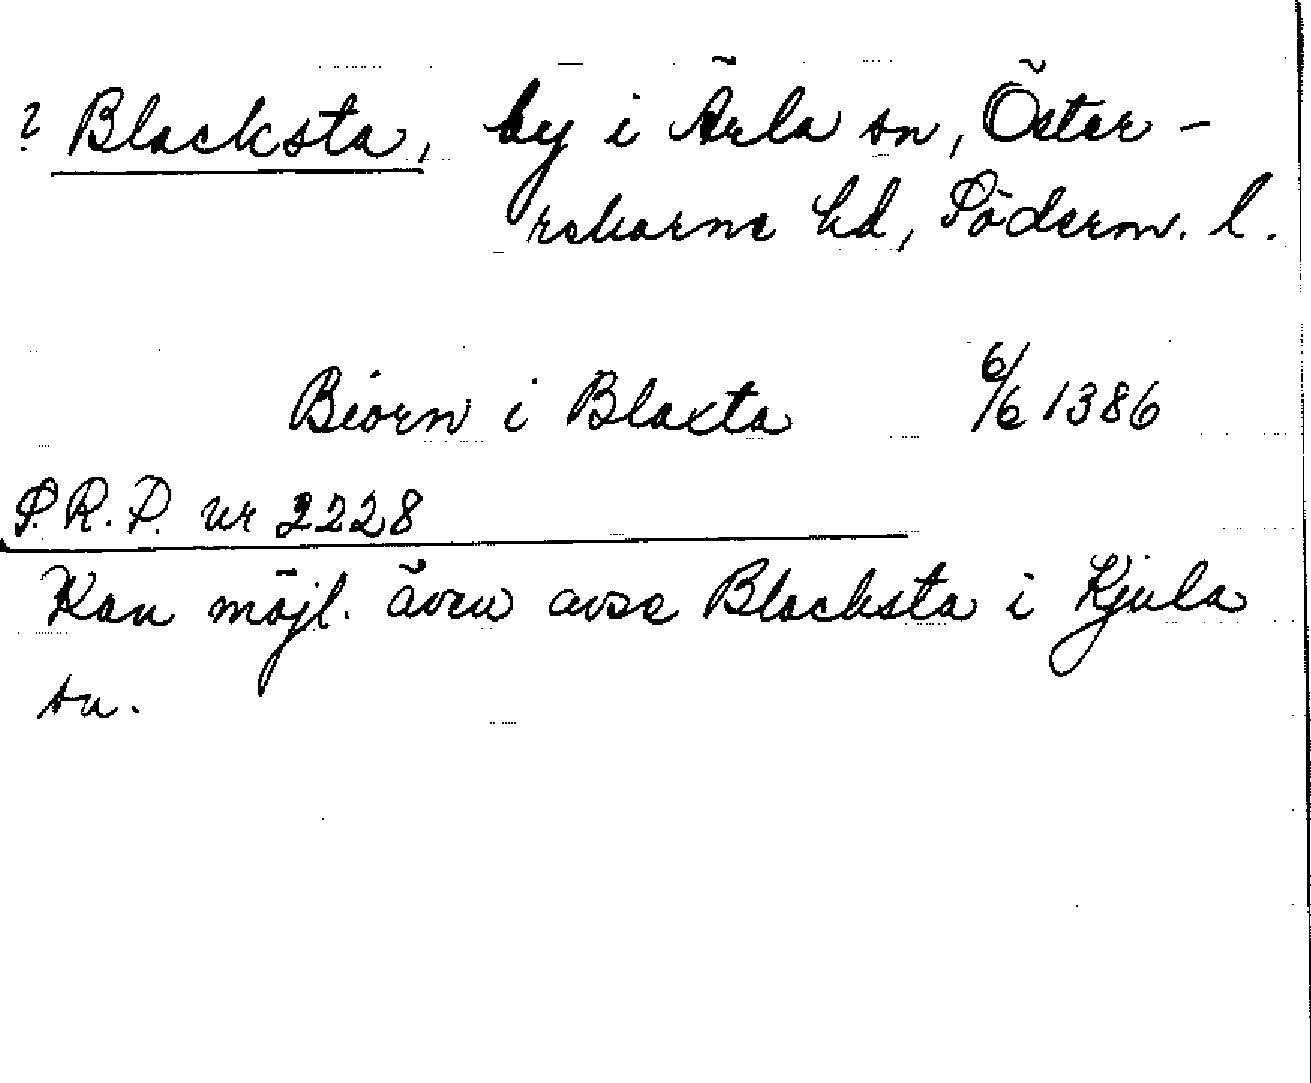 ? Blacksta, by i Ärla sn, Öster-
rekarne hd, Söderm. l.
Biorn i Blaxta 6/6 1386
S.R.P. nr 2228
Kan möjl. även avse Blacksta i Kjula
sn.